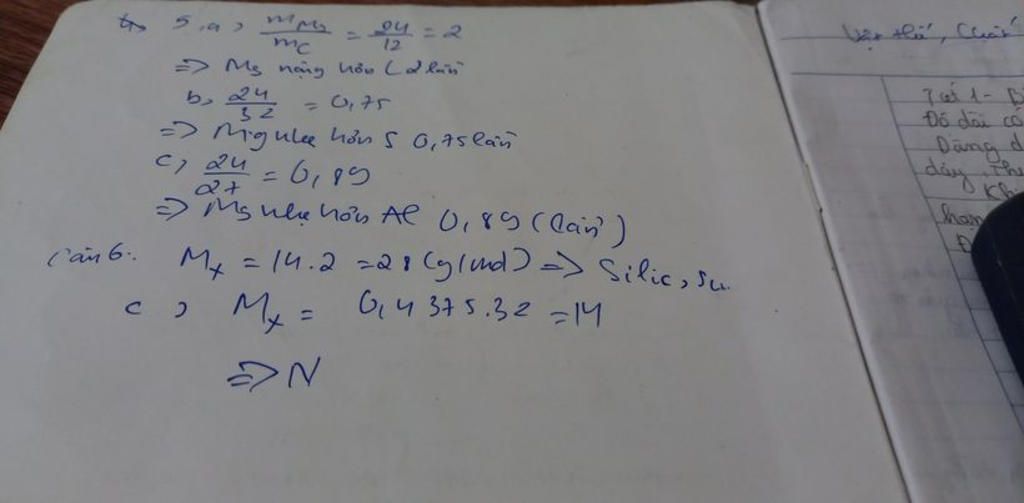 5.a, mMg/mC = 24/12 = 2
=> Mg nặng hơn C 2 lần
b, 24/32 = 0,75
=> Mg nhẹ hơn S 0,75 lần
c, 24/27 = 0,89
=> Mg nhẹ hơn Al 0,89 (lần)
Câu 6: Mx = 14.2 = 28 (g/mol) => Silic,
c, Mx = 0,4375.32 = 14
=> N
Vật thể, Chất
Tiết 1 -
Độ dài
Dùng
dây